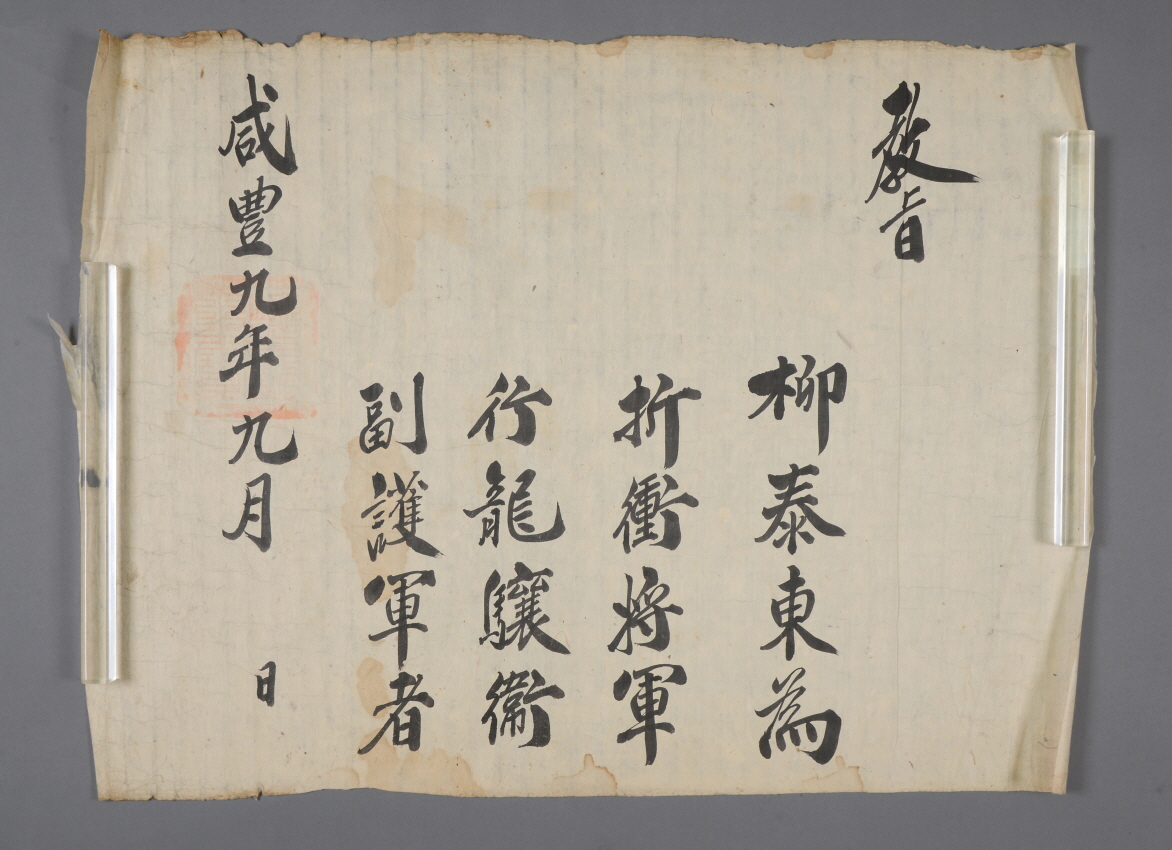 教旨
柳泰東為
折衝將軍
行龍驤衛
副護軍者
咸豊九年九月　日